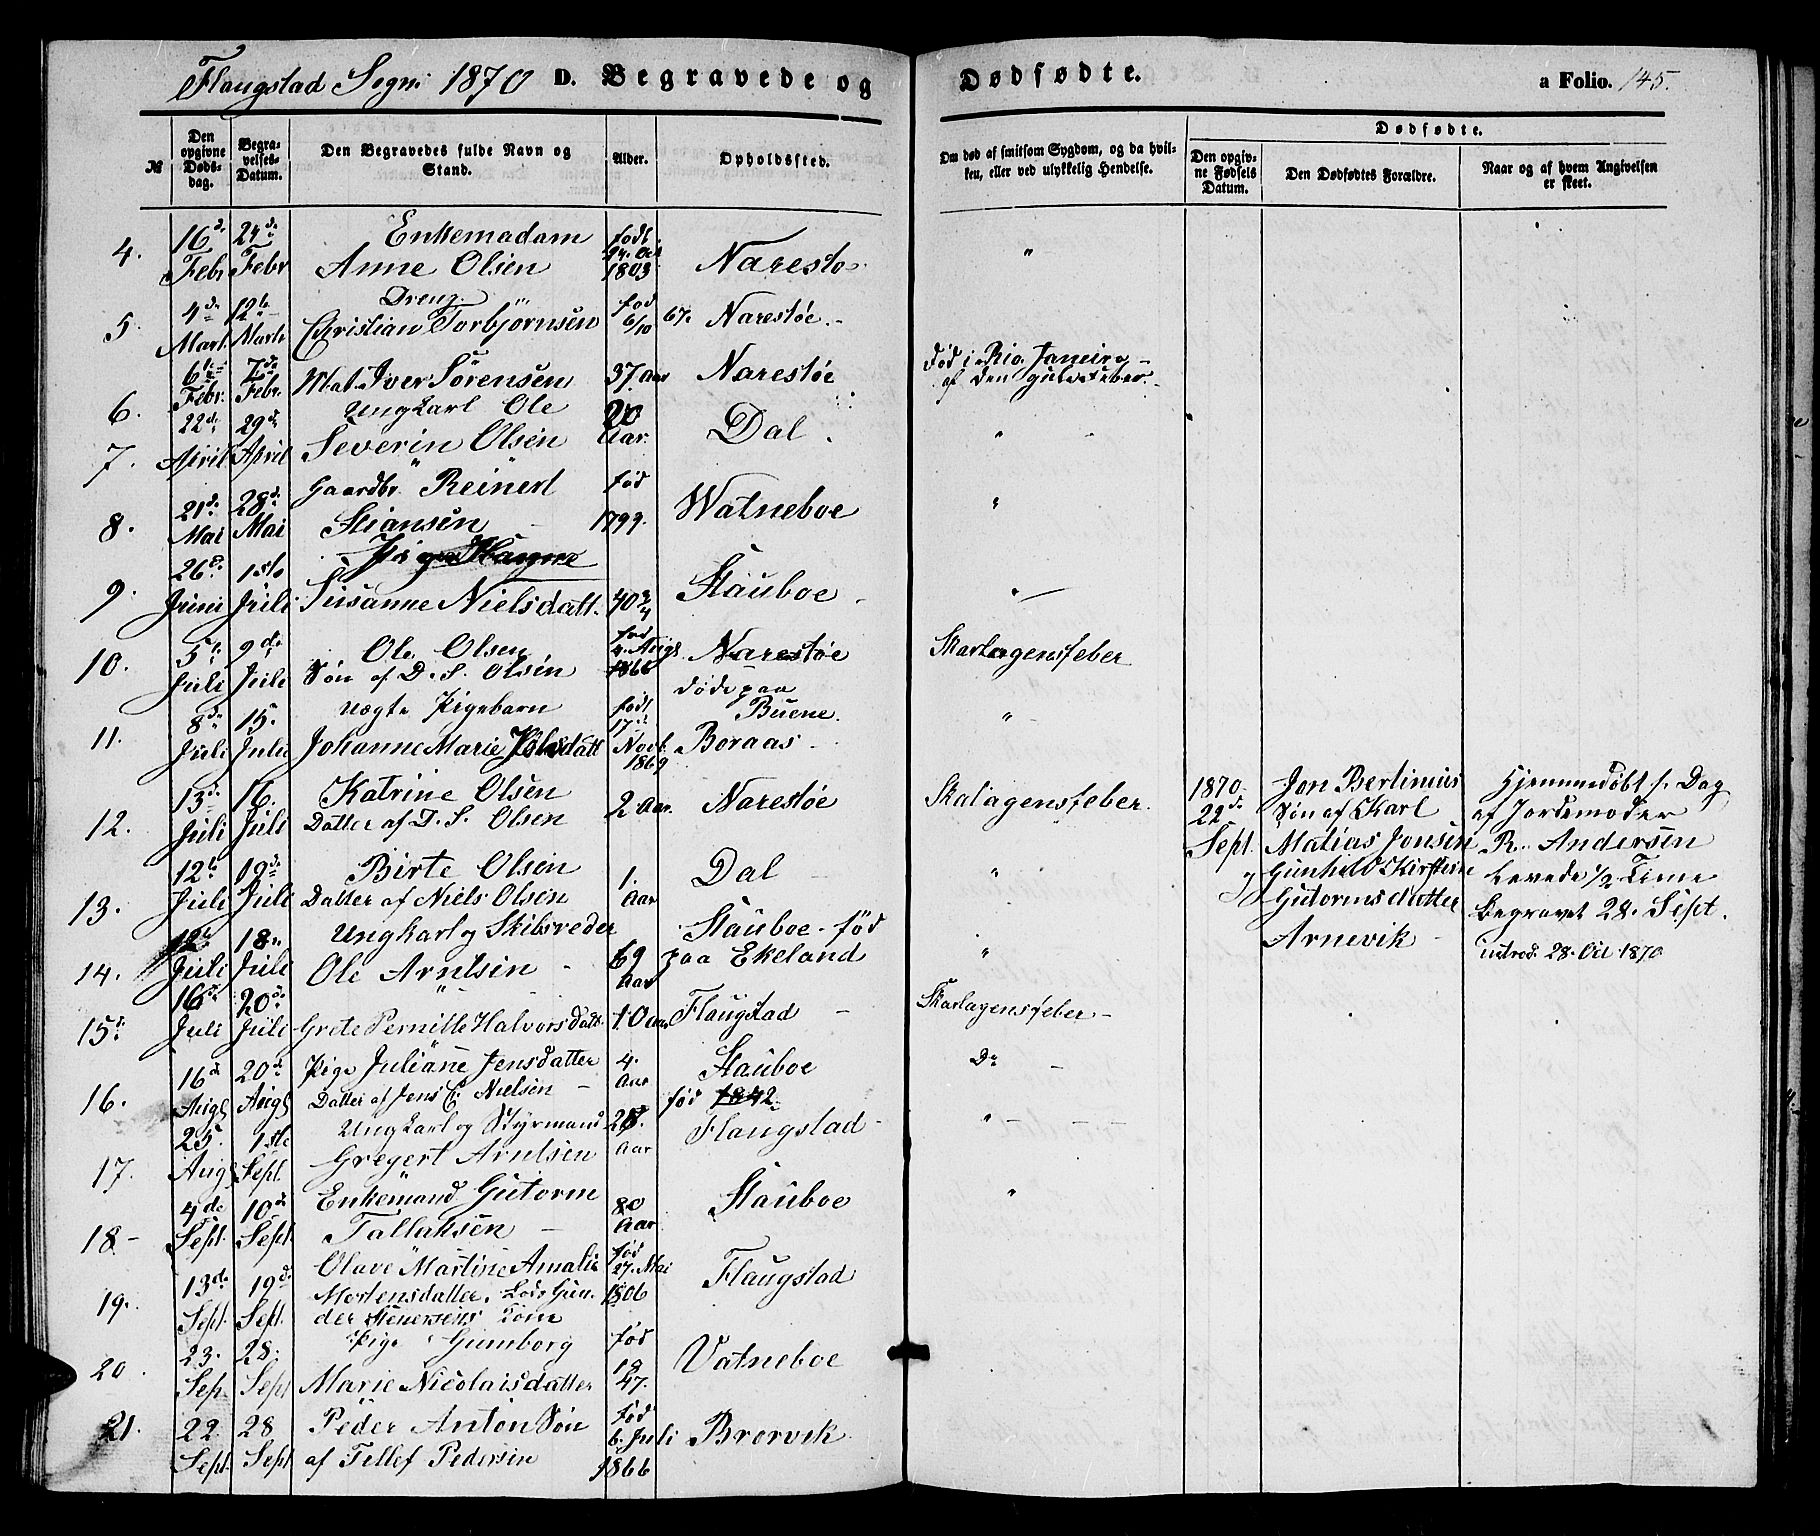 Flaugstad Sogn 1870 D. Begravede og Dødfødte. a Folio. 145.
№ Den opgivne Dødsdag. Begravelses-Datum. Den Begravedes fulde Navn og Stand. Alder. Opholdssted. Om død af smitsom Sygdom, og da hvilken, eller ved ulykkelig Hendelse.
Dødfødte.
Den opgivne Fødsels Datum. Den Dødfødtes Forældre. Naar og af hvem Angivelsen er skeet.
16de 24de Enkemadam født
4. Febr Febr Anne Olsen 1803 Naresto "
4de 12te Dreng fød
5. Mart. Marts Christian Torbjörnsen 6/10 67. Narestøe.
6te 7de Mat. Iver Sörensen 37 Aar Narestøe Død i Rio Janeiro
6. Febr. Febr. af den gule Feber.
22de 29de Ungkarl Ole 20
7. April April Severin Olsen Aar. Dal. "
21de 28de Gaardbr. Reinert fød
8. Mai Mai Stiansen 1799. Watneboe "
26de 1ste
9. Juni Juli Susanne Nielsdatt. 40 3/4 Stauboe "
5te 9de Ole Olsen fød 4. Aug.
10. Juli Juli Søn af D. S. Olsen 1866 Narestøe Skarlagensfeber
8de 15. uægte Pigebarn født døde paa Buene.
11. Juli Juli Johanne Marie 17de Novb. 1869 Boraas "
13de 16. Katrine Olsen
12. Juli Juli Datter af D. S. Olsen 2 Aar. Narestøe Skalagensfeber.
12te 19de Birte Olsen 1.
13. Juli Juli Datter af Niels Olsen Aar Dal "
12te 18de Ungkarl og Skibsreder 69 Stauboe - fød
14. Juli Juli Ole Arntsen Aar paa Ekeland "
16de 20de
15de Juli Juli Grete Pernille Halvorsdatt. 10 Aar Flaugstad Skarlagensfeber
16d 20d Pige Juliane Jensdatter 4.
16. Augs Augs Datter af Jens C. Nielsen Aar Stauboe Do
25. 1ste Ungkarl og Styrmand 28. fød 1842
17. Augs Sept. Gregert Arntsen Aar Flaugstad "
4de 10de Enkemand Gutorm 80
18 Sept. Sept. Tallaksen Aar Stauboe "
13de 19de Olave Martine Amalie fød 27. Mai
19. Sept. Sept. Mortensdatter. Løsg Gunder Stenersens Tøm 1806 Flaugstad
23. 28. Pige Gunborg fød
20 Sep. Sept Marie Nicolaisdatter 1847. Vatneboe
22 28 Peder Anton Søn fød 6. Juli
21. Sept. Sept af Tellef Pedersen 1866 Brorvik
1870 Jon Bertinius Hjemmedøbt s. Dag
22de Søn af Karl af Jordemoder
Sept. Matias Jonsen R. Andersen
og Gunhild Kirstine Levede 1/2 Time
Gutormsdatter Begravet 28. Sept.
Arnevik introd. 28. Oct 1870